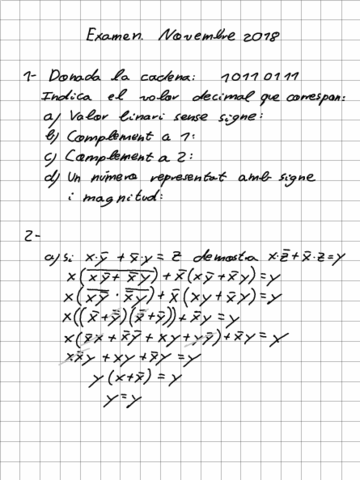 Examen. Novembre 2018
1- Donada la cadena: 10110111
Indica el valor decimal que correspon:
a) Valor binari sense signe:
b) Complement a 1:
c) Complement a 2:
d) Un número representat amb signe
i magnitud:
2-
a) si x·y̅ + x̅·y = z demostra x·z̅ + x̅·z = y
x(x̅y̅̅ ̅+̅ ̅x̅̅y̅) + x̅(xy̅ + x̅y) = y
x(x̅y̅̅ · x̅̅y̅) + x̅(xy + x̅y) = y
x((x̅+y̅̅)(x̅̅+y̅)) + x̅y = y
x(x̅x + x̅y̅ + xy + yy̅) + x̅y = y
xx̅y + xy + x̅y = y
y(x+x̅) = y
y = y